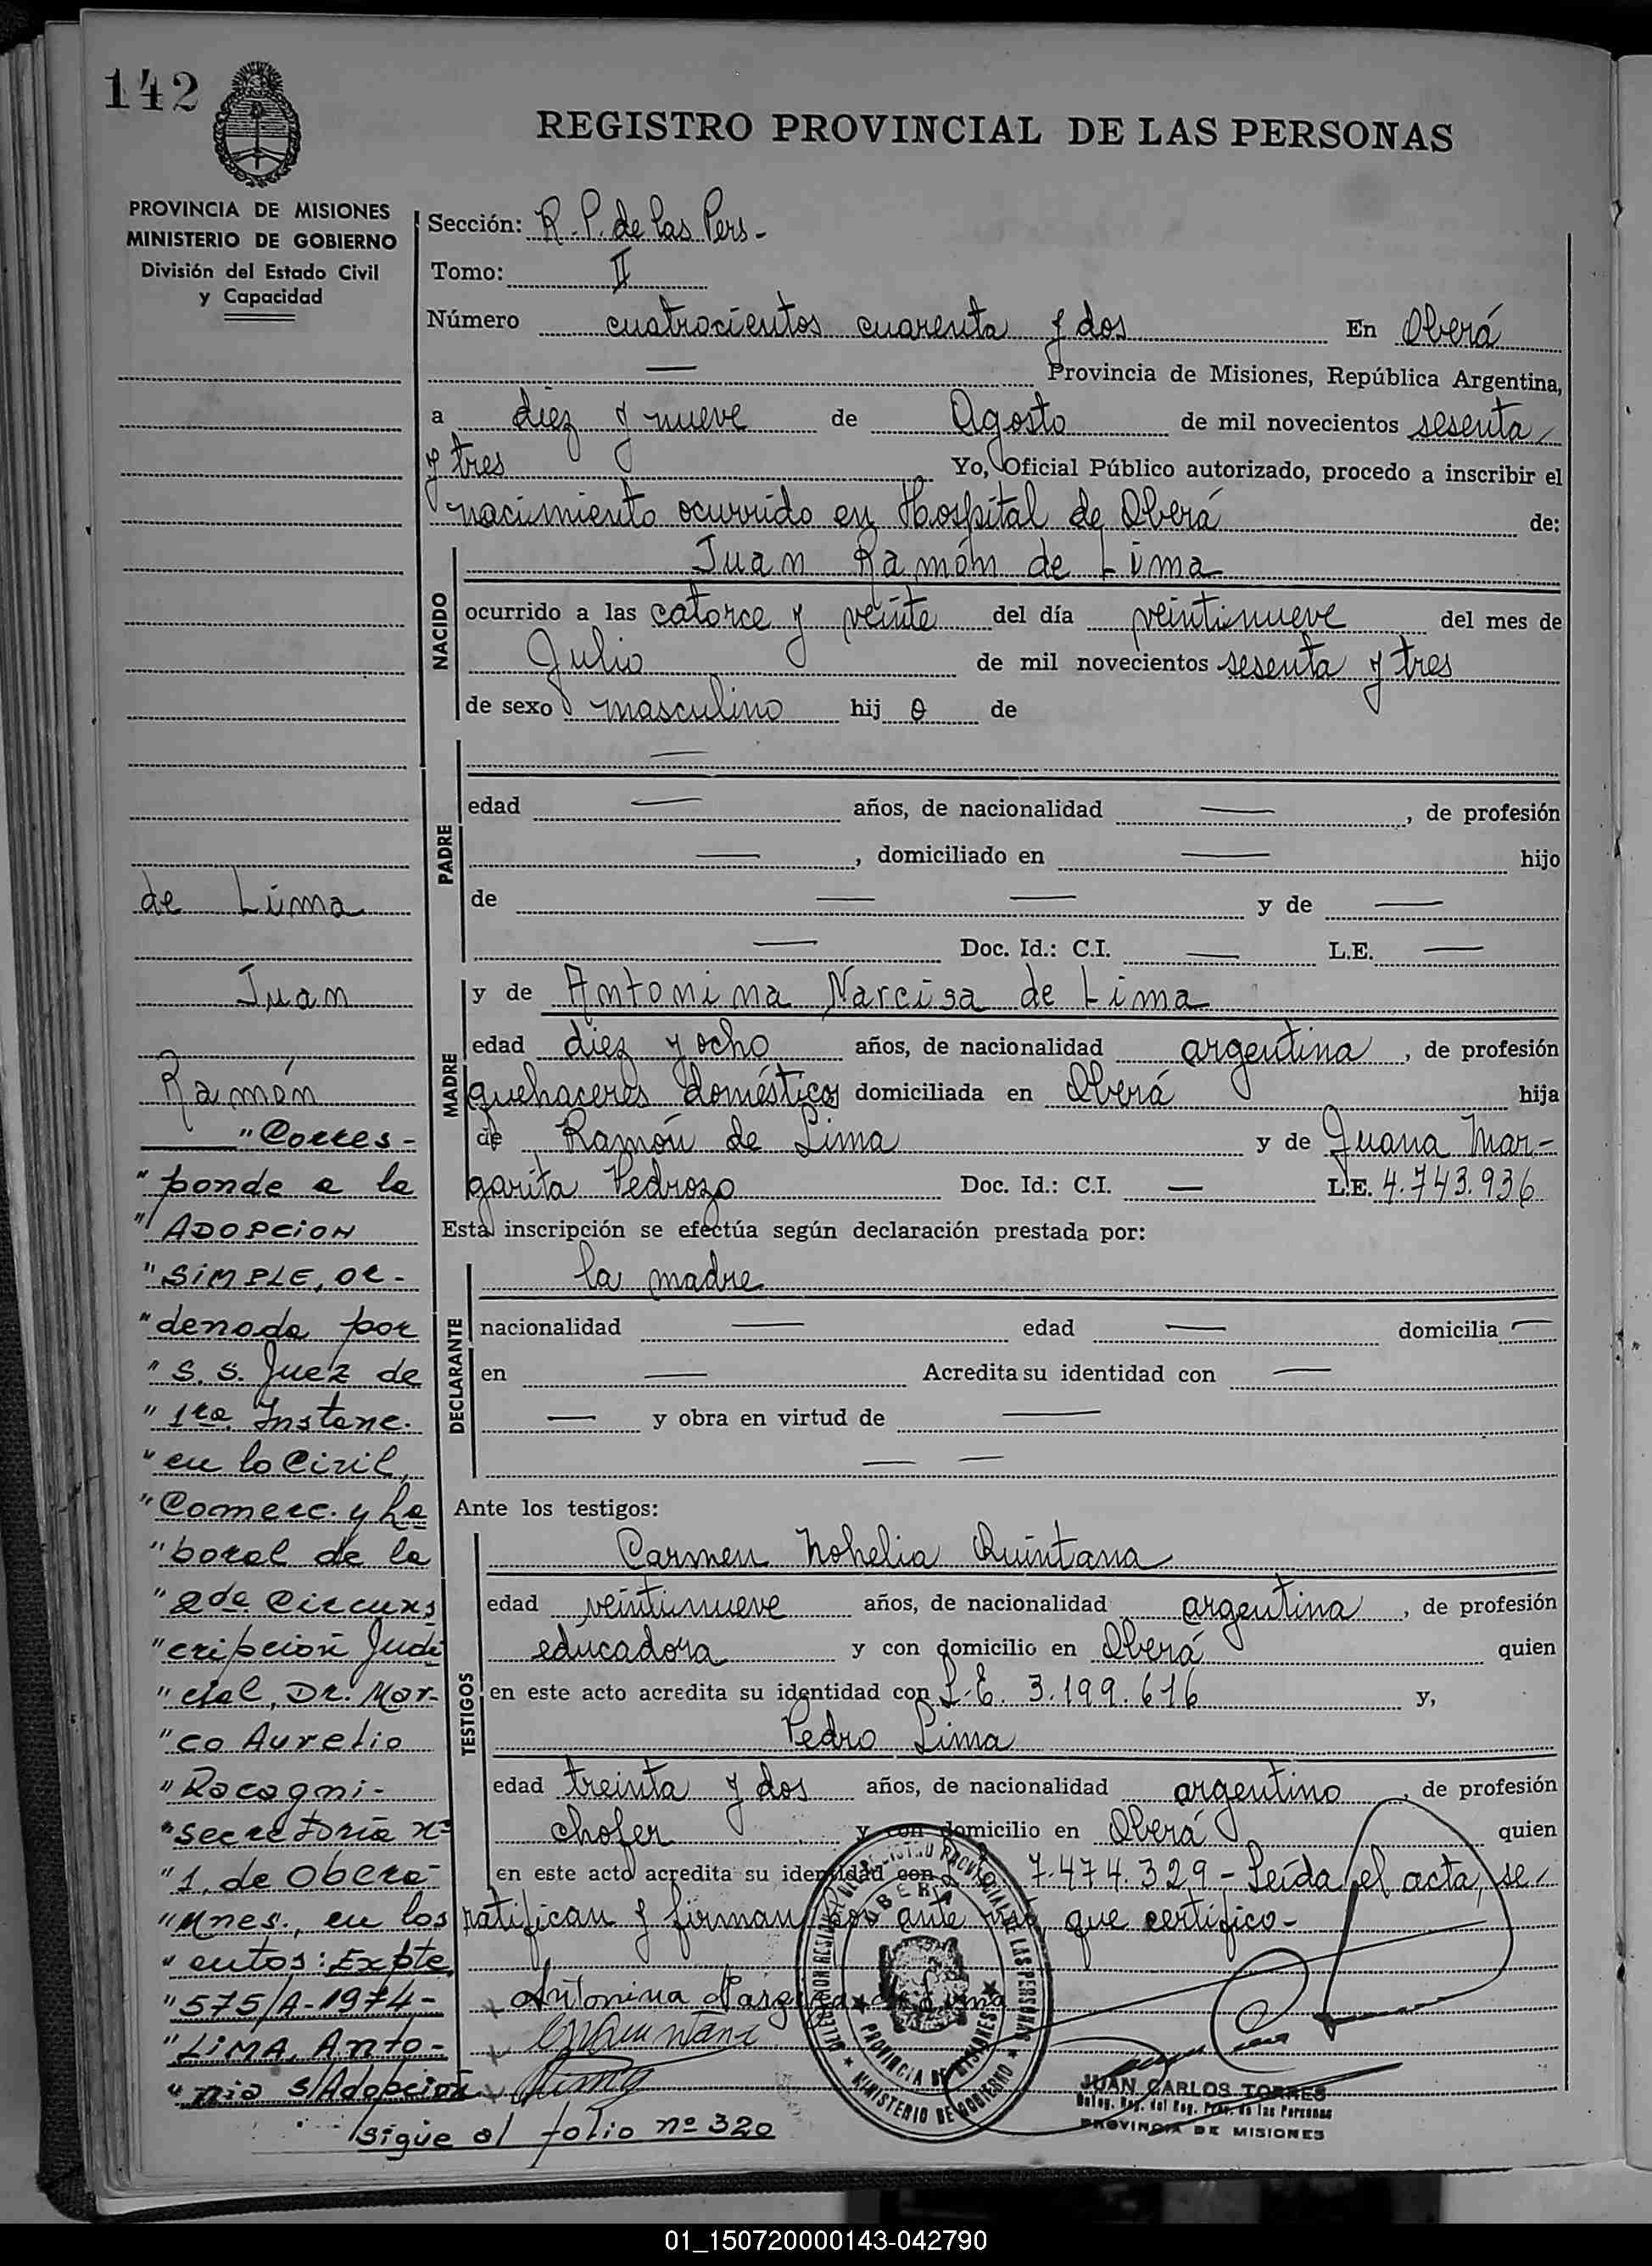 142
REGISTRO PROVINCIAL DE LAS PERSONAS
PROVINCIA DE MISIONES
MINISTERIO DE GOBIERNO
División del Estado Civil
y Capacidad
Sección: R. P. de las Pers-
Tomo: II
Número cuatrocientos cuarenta y dos En Oberá
— Provincia de Misiones, República Argentina,
a diez y nueve de Agosto de mil novecientos sesenta
y tres Yo, Oficial Público autorizado, procedo a inscribir el
nacimiento ocurrido en Hospital de Oberá de:
NACIDO
Juan Ramón de Lima
ocurrido a las catorce y veinte del día veintinueve del mes de
Julio de mil novecientos sesenta y tres
de sexo masculino hij o de
PADRE
—
edad — años, de nacionalidad —, de profesión
—, domiciliado en — hijo
de — — y de —
— Doc. Id.: C.I. — L.E. —
MADRE
y de Antonina Narcisa de Lima
edad diez y ocho años, de nacionalidad argentina, de profesión
quehaceres domésticos domiciliada en Oberá hija
de Ramón de Lima y de Juana Mar-
garita Pedrozo Doc. Id.: C.I. — L.E. 4.743.936
Esta inscripción se efectúa según declaración prestada por:
DECLARANTE
la madre
nacionalidad — edad — domicilia —
en — Acredita su identidad con —
— y obra en virtud de —
— —
Ante los testigos:
TESTIGOS
Carmen Nohelia Quintana
edad veintinueve años, de nacionalidad argentina, de profesión
educadora y con domicilio en Oberá quien
en este acto acredita su identidad con L.E. 3.199.616 y,
Pedro Lima
edad treinta y dos años, de nacionalidad argentino, de profesión
chofer y con domicilio en Oberá quien
en este acto acredita su identidad con 7.474.329- Leída el acta, se
ratifican y firman por ante que certifico-
Antonina Narciza de Lima
de Lima
Juan
Ramón
"Corres-
"ponde a la
"ADOPCION
"SIMPLE, or-
"denada por
"S. S. Juez de
"1ra. Instanc.
"en lo Civil,
"Comerc. y La
"boral de la
"2da. Circuns
"cripción Judi
"cial, Dr. Mar-
"co Aurelio
"Racagni-
"secretoría nº
"1, de Obera-
"Mnes., en los
"autos: Expte.
"575/A-1974-
"LIMA, Anto-
"nia s/Adopción
sigue al folio nº 320
DELEGACION REGISTRO PROVINCIAL DE LAS PERSONAS
OBERA
PROVINCIA DE MISIONES
MINISTERIO DE GOBIERNO
JUAN CARLOS TORRES
Deleg. Reg. del Reg. Prov. de las Personas
PROVINCIA DE MISIONES
01_150720000143-042790